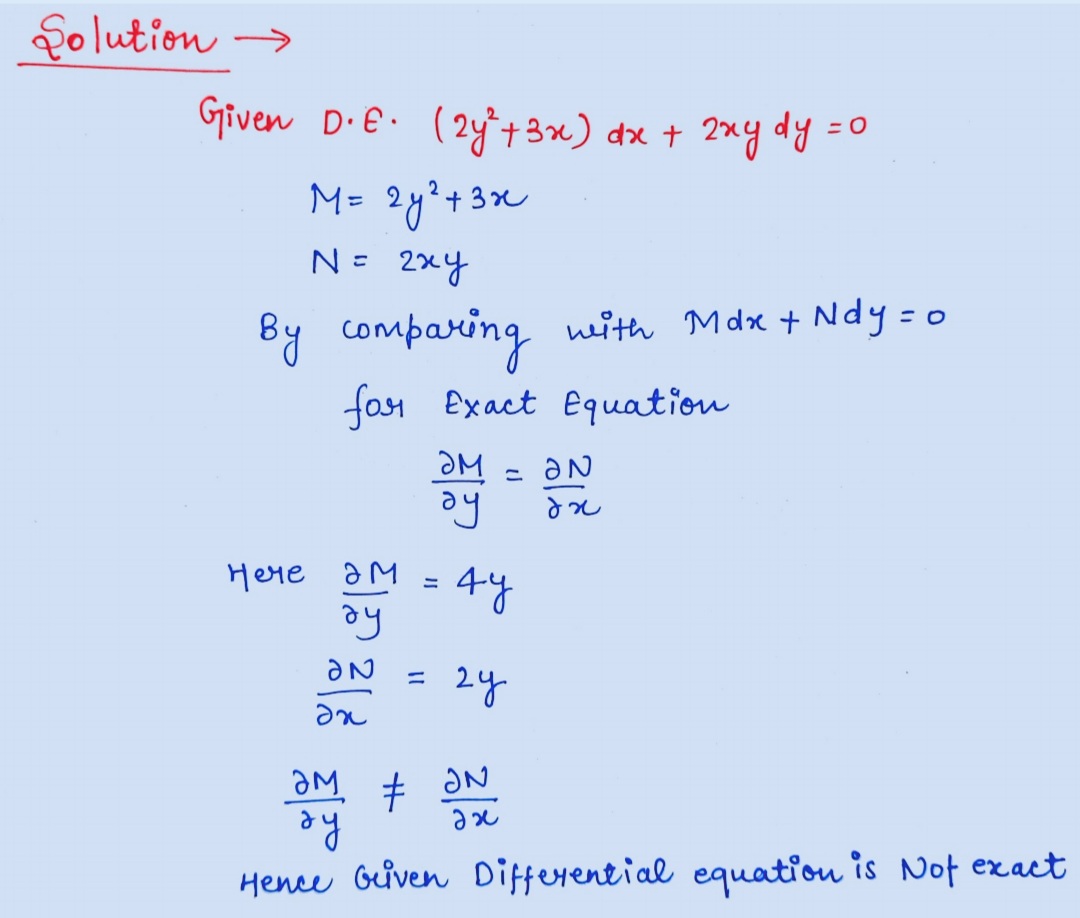 Solution →
Given D.E. (2y²+3x) dx + 2xy dy = 0
M = 2y²+3x
N = 2xy
By comparing with Mdx + Ndy = 0
for Exact Equation
∂M/∂y = ∂N/∂x
Here ∂M/∂y = 4y
∂N/∂x = 2y
∂M/∂y ≠ ∂N/∂x
Hence Given Differential equation is Not exact